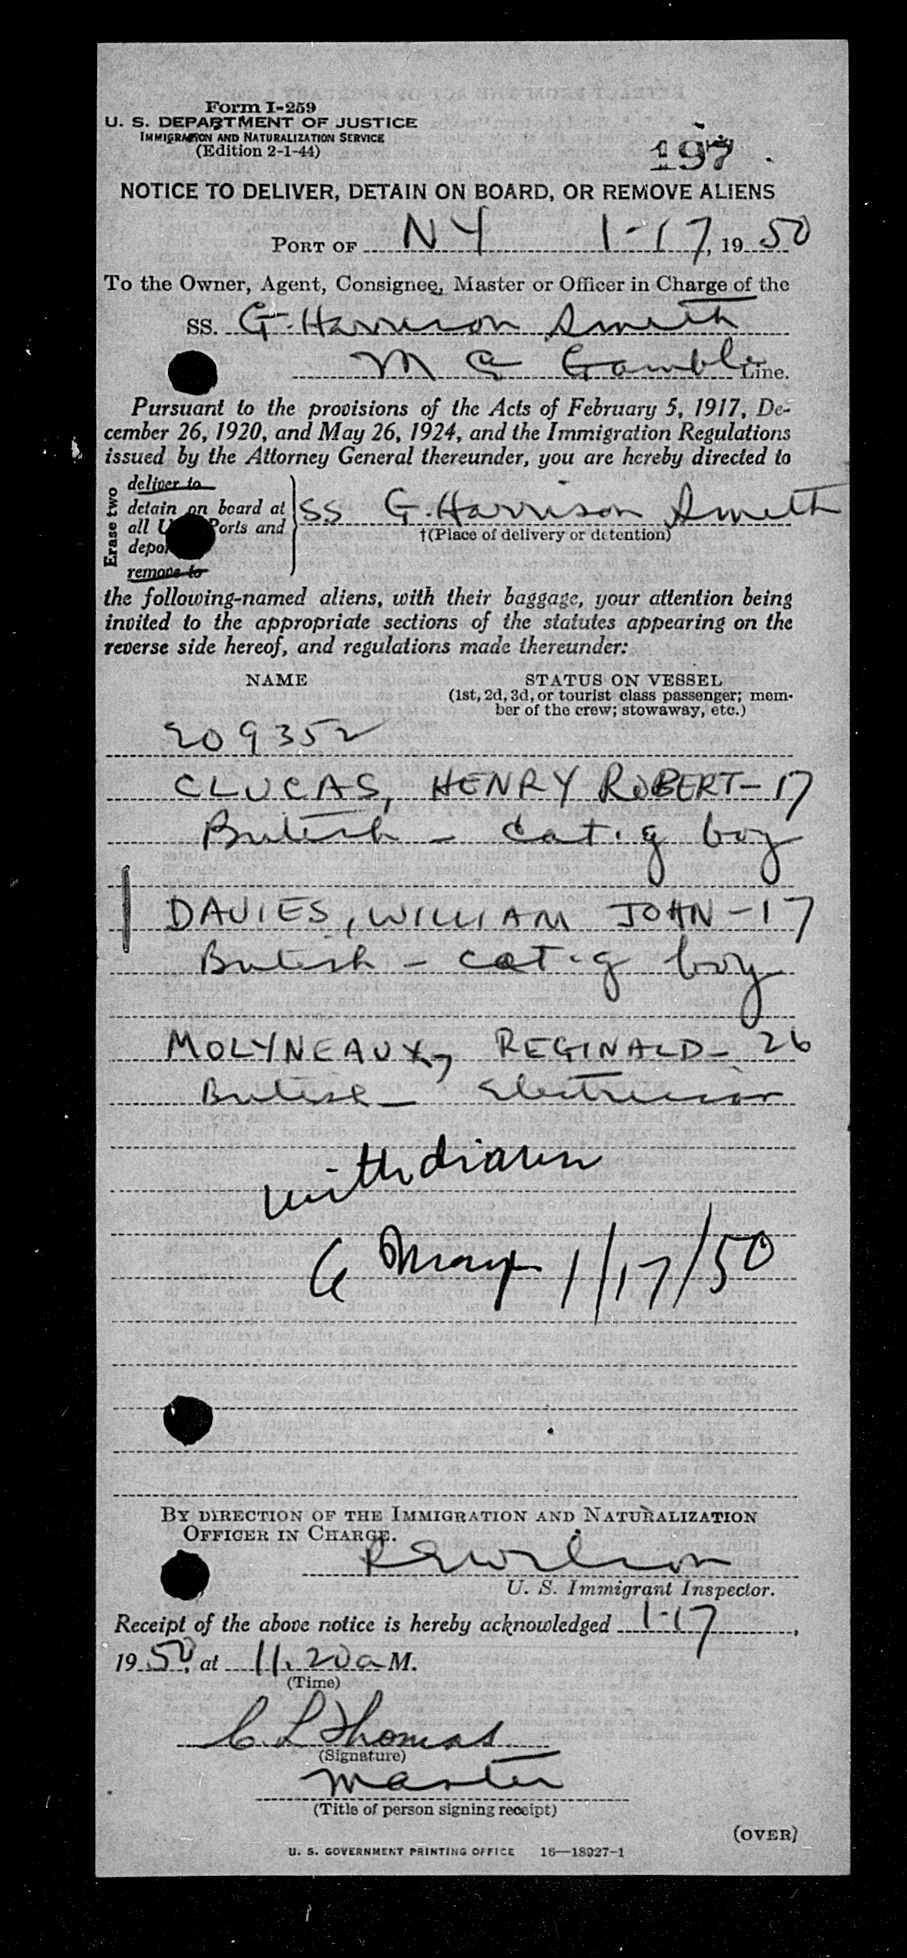 Form I-259
U. S. DEPARTMENT OF JUSTICE
IMMIGRATION AND NATURALIZATION SERVICE
(Edition 2-1-44)
197
NOTICE TO DELIVER, DETAIN ON BOARD, OR REMOVE ALIENS
PORT OF NY 1-17, 19 50
To the Owner, Agent, Consignee, Master or Officer in Charge of the
SS. G. Harrison Smith
Gamble Line.
Pursuant to the provisions of the Acts of February 5, 1917, De-
cember 26, 1920, and May 26, 1924, and the Immigration Regulations
issued by the Attorney General thereunder, you are hereby directed to
Erase two
deliver to
detain on board at
all U Ports and
depor
remove to
SS G. Harrison Smith
†(Place of delivery or detention)
the following-named aliens, with their baggage, your attention being
invited to the appropriate sections of the statutes appearing on the
reverse side hereof, and regulations made thereunder:
NAME STATUS ON VESSEL
(1st, 2d, 3d, or tourist class passenger; mem-
ber of the crew; stowaway, etc.)
209352
CLUCAS, HENRY ROBERT-17
British - cat. g boy
DAVIES, WILLIAM JOHN-17
British - cat. g boy
MOLYNEAUX, REGINALD- 26
British - Electrician
withdrawn
1/17/50
BY DIRECTION OF THE IMMIGRATION AND NATURALIZATION
OFFICER IN CHARGE.
Wilson
U. S. Immigrant Inspector.
Receipt of the above notice is hereby acknowledged 1-17,
19 50, at 11.20 a M.
(Time)
C L Thomas
(Signature)
Master
(Title of person signing receipt)
(OVER)
U. S. GOVERNMENT PRINTING OFFICE 16—18027-1